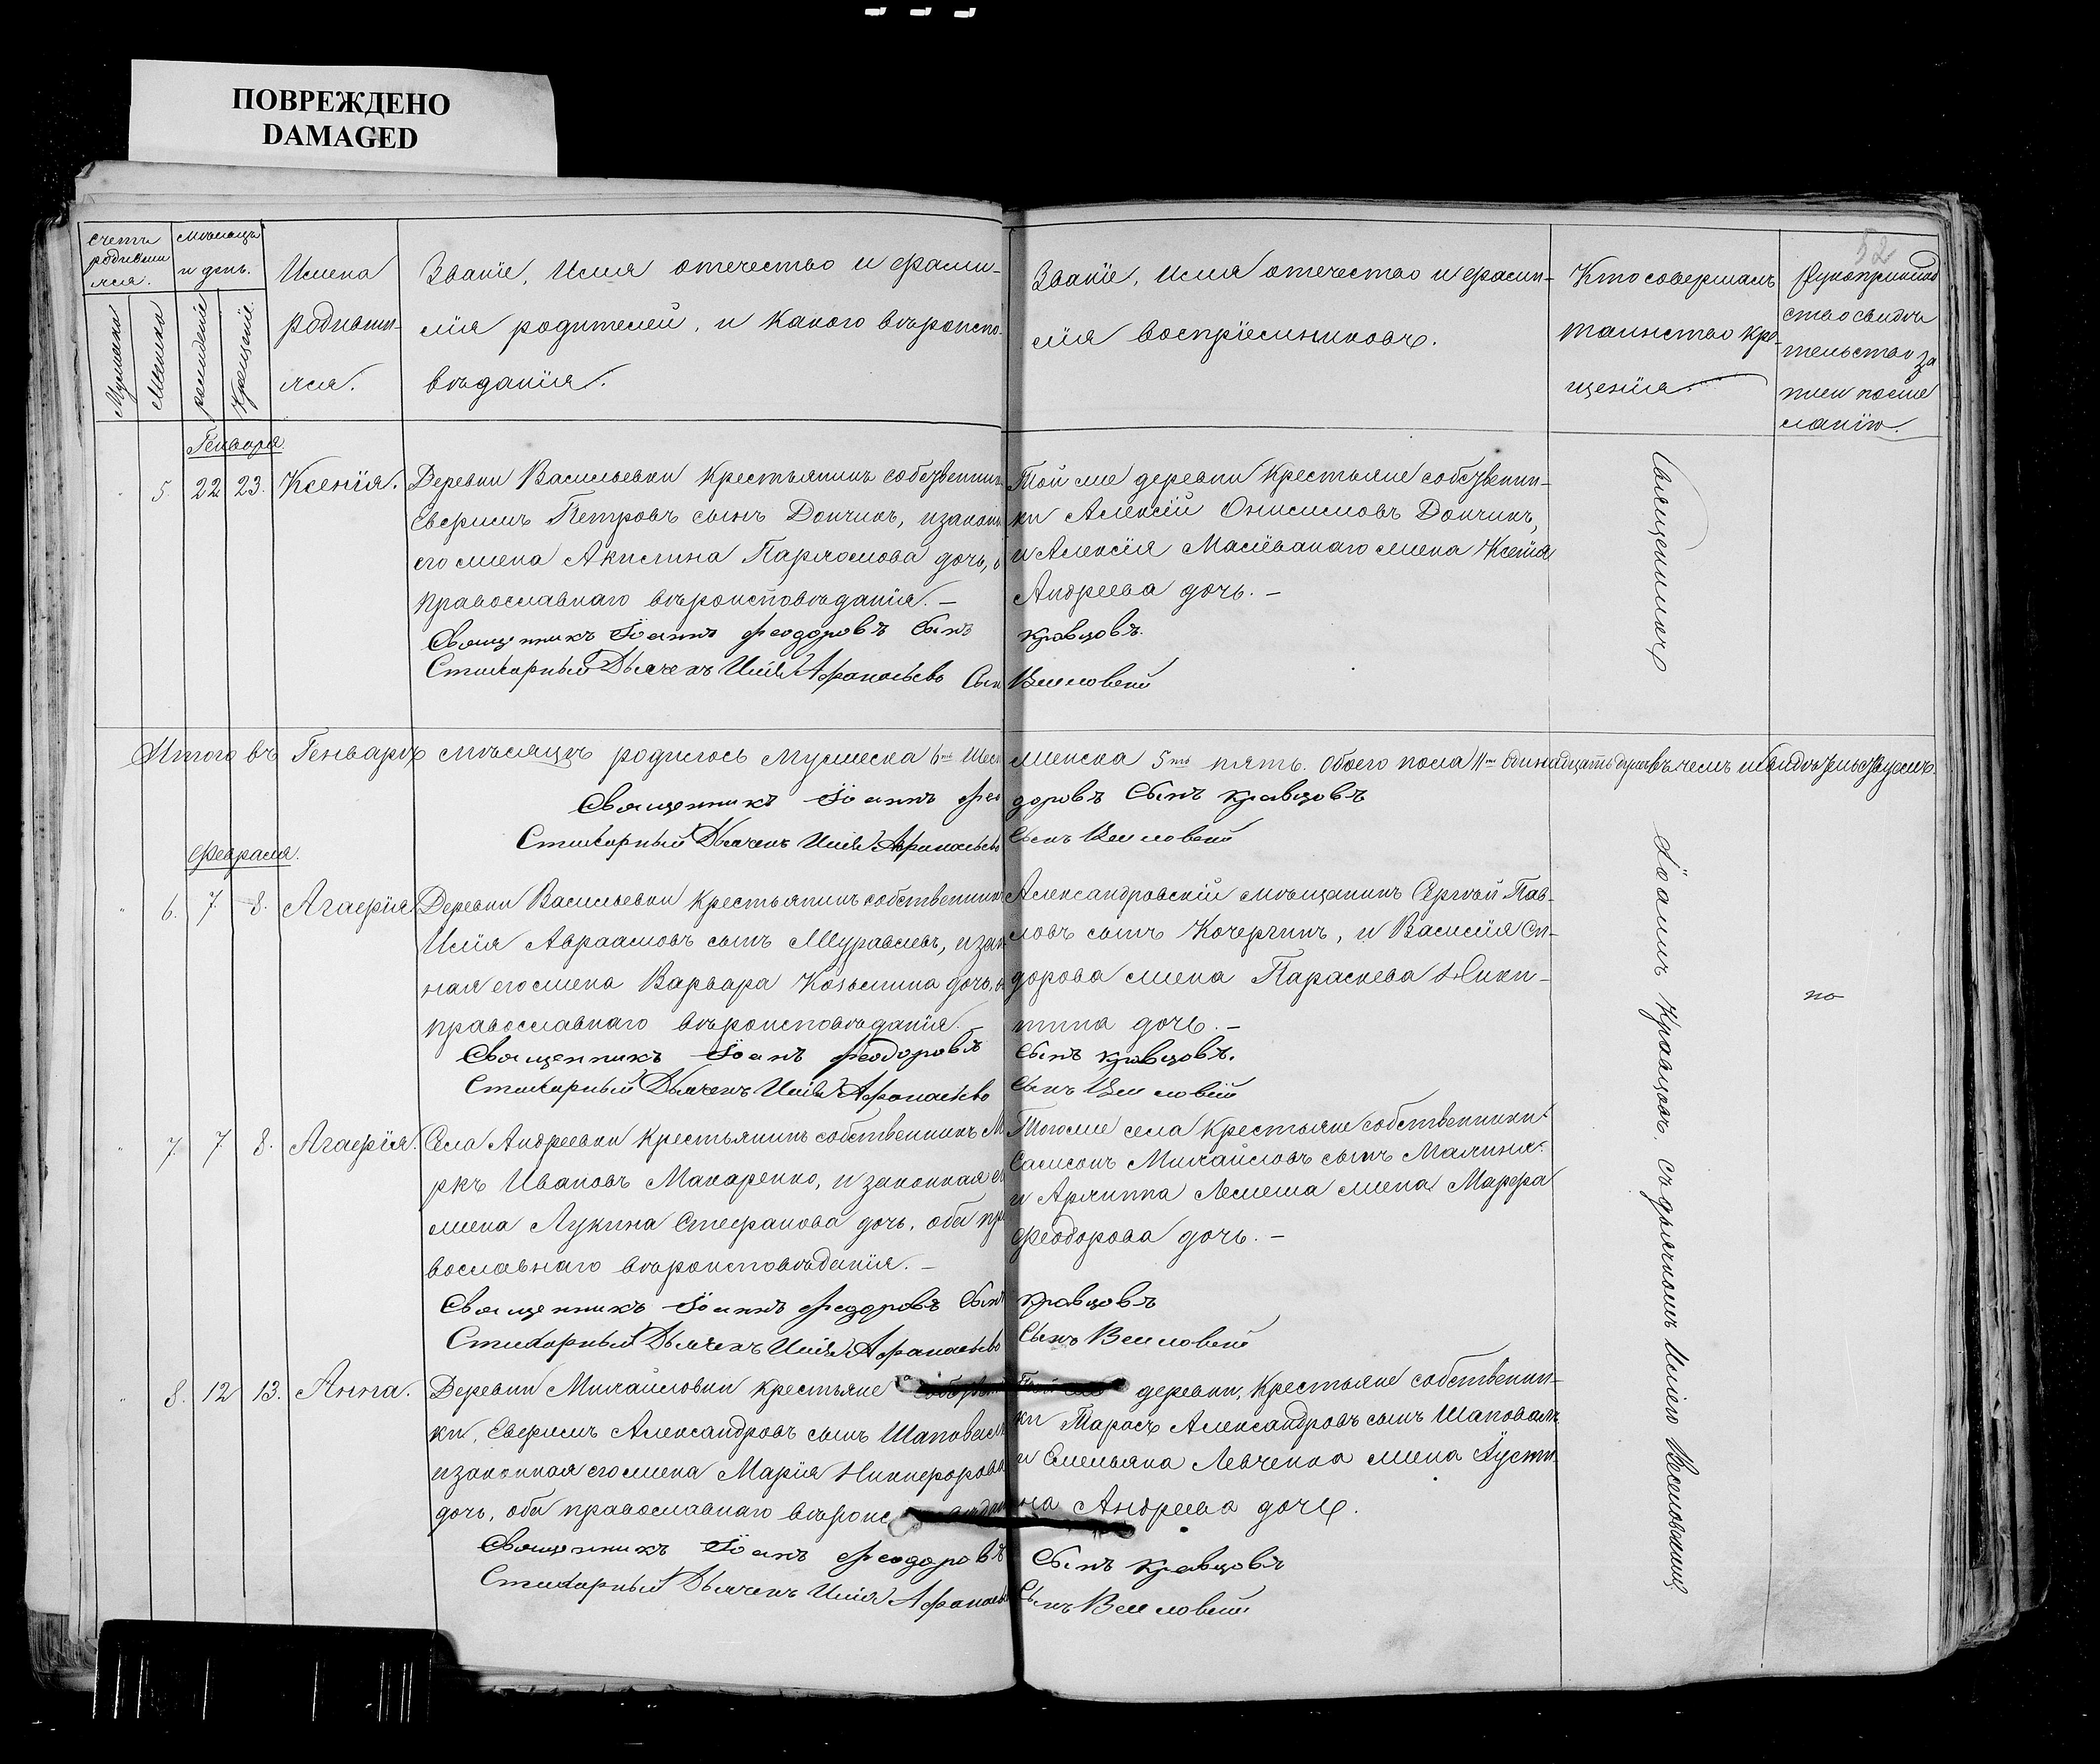 ПОВРЕЖДЕНО
DAMAGED
52
Счетъ родившихся.
Мѣсяцъ и день.
Мужска
Женска
рожденіе
Крещеніе.
Имена
родивши-
хся.
Званіе, Имя отечество и фами-
лія родителей, и какого вѣроиспо-
вѣданія.
Званіе, Имя отечество и фами-
лія воспріемниковъ.
Кто совершалъ
таинство кре-
щенія.
Рукоприклад
ство свидѣ
тельства за
писи по же
ланію.
Генваря.
5. 22 23. Ксенія.
Деревни Васильевки Крестьянинъ собственник
Евфимъ Петровъ сынъ Дончикъ, и законн
его жена Акилина Парѳомова дочь, о
православнаго вѣроисповѣданія. —
Священникъ Іоаннъ Феодоровъ Сынъ
Стихарный Дьячекъ Илія Афанасьевъ Сын
Той же деревни Крестьяне собственни-
ки Алексій Онисимовъ Дончикъ,
и Алексія Масливанаго жена Ксенія
Андреева дочь. —
Кравцовъ.
Веселовскій
Итого въ Генварѣ мѣсяцѣ родилось Мужеска 6ть Шест
женска 5ть пять. Обоего пола 11ть Одинадцать душъ въ чемъ и свидѣтельствуемъ.
Священникъ Іоаннъ Фео
доровъ Сынъ Кравцовъ
Стихарный Дьячекъ Илія Афанасьевъ
Сынъ Веселовскій
Февраля.
6. 7. 8. Агафія
Деревни Васильевки Крестьянинъ собственник
Илія Авраамовъ сынъ Журавлевъ, и закон
ная его жена Варвара Козьмина дочь, о
православнаго вѣроисповѣданія. —
Священникъ Іоаннъ Феодоровъ
Стихарный Дьячекъ Илія Афанасьевъ
Александровскій мѣщанинъ Сергѣй Пав-
ловъ сынъ Кочергинъ, и Василія Си-
дорова жена Параскева Ники-
тина дочь. —
Сынъ Кравцовъ.
Сынъ Веселовскій
7 7 8. Агафія.
Села Андреевки Крестьянинъ собственникъ М
ркъ Ивановъ Макаренко, и законная е
жена Лукина Стефанова дочь, оба пр
вославнаго вѣроисповѣданія. —
Священникъ Іоаннъ Феодоровъ Сынъ
Стихарный Дьячекъ Илія Афанасьевъ
Тогоже села Крестьяне собственники:
Самсонъ Михайловъ сынъ Малина:
и Архиппа Лемеша жена Марфа
Феодорова дочь. —
Кравцовъ
Сынъ Веселовскій
8. 12 13. Анна.
Деревни Михайловки Крестьяне
ки, Евфимъ Александровъ сынъ Шаповалъ
и законная его жена Марія Никифорова
дочь, оба православнаго вѣроис
Священникъ Іоаннъ Феодоровъ
Стихарный Дьячекъ Илія Афанасьев
деревни, Крестьяне собственни-
ки Тарасъ Александровъ сынъ Шаповалъ
и Емельяна Левченка жена Іусти-
на Андреева дочь.
Сынъ Кравцовъ
Сынъ Веселовскій
Священникъ
Іоаннъ Кравцовъ, съ дьячкомъ Иліею Веселовскимъ